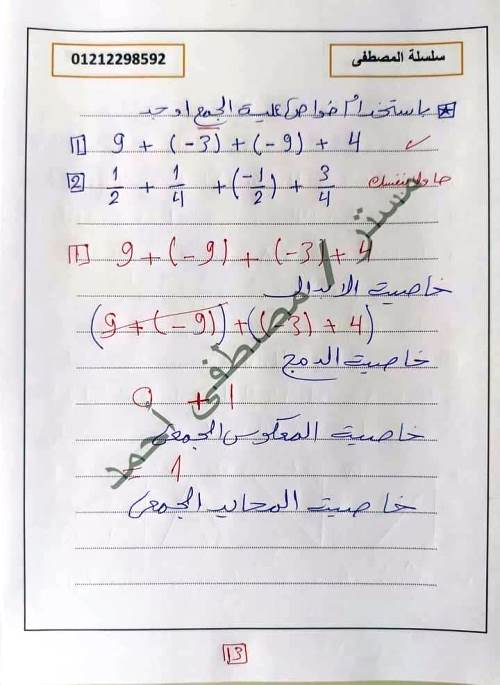 01212298592
سلسلة المصطفى
باستخدام خواص عملية الجمع اوجد
1 9 + (-3) + (-9) + 4
2 1/2 + 1/4 + (-1/2) + 3/4
حاول بنفسك
1 9 + (-9) + (-3) + 4
خاصيت الابدال
(9 + (-9)) + ((-3) + 4)
خاصيت الدمج
0 + 1
خاصيت المعكوس الجمعى
= 1
خاصيت المحايد الجمعى
مستر / مصطفى احمد
13